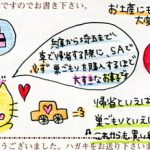 ですのでお書き下さい。
お土産にも
大
兵庫から埼玉まで
車で帰省する際に、SAで
必ず巣ごもりを購入するほど
大すきなお菓子
帰省といえば
巣ごもりといえば
これからも買い
うございました。ハガキをお送り下さいま